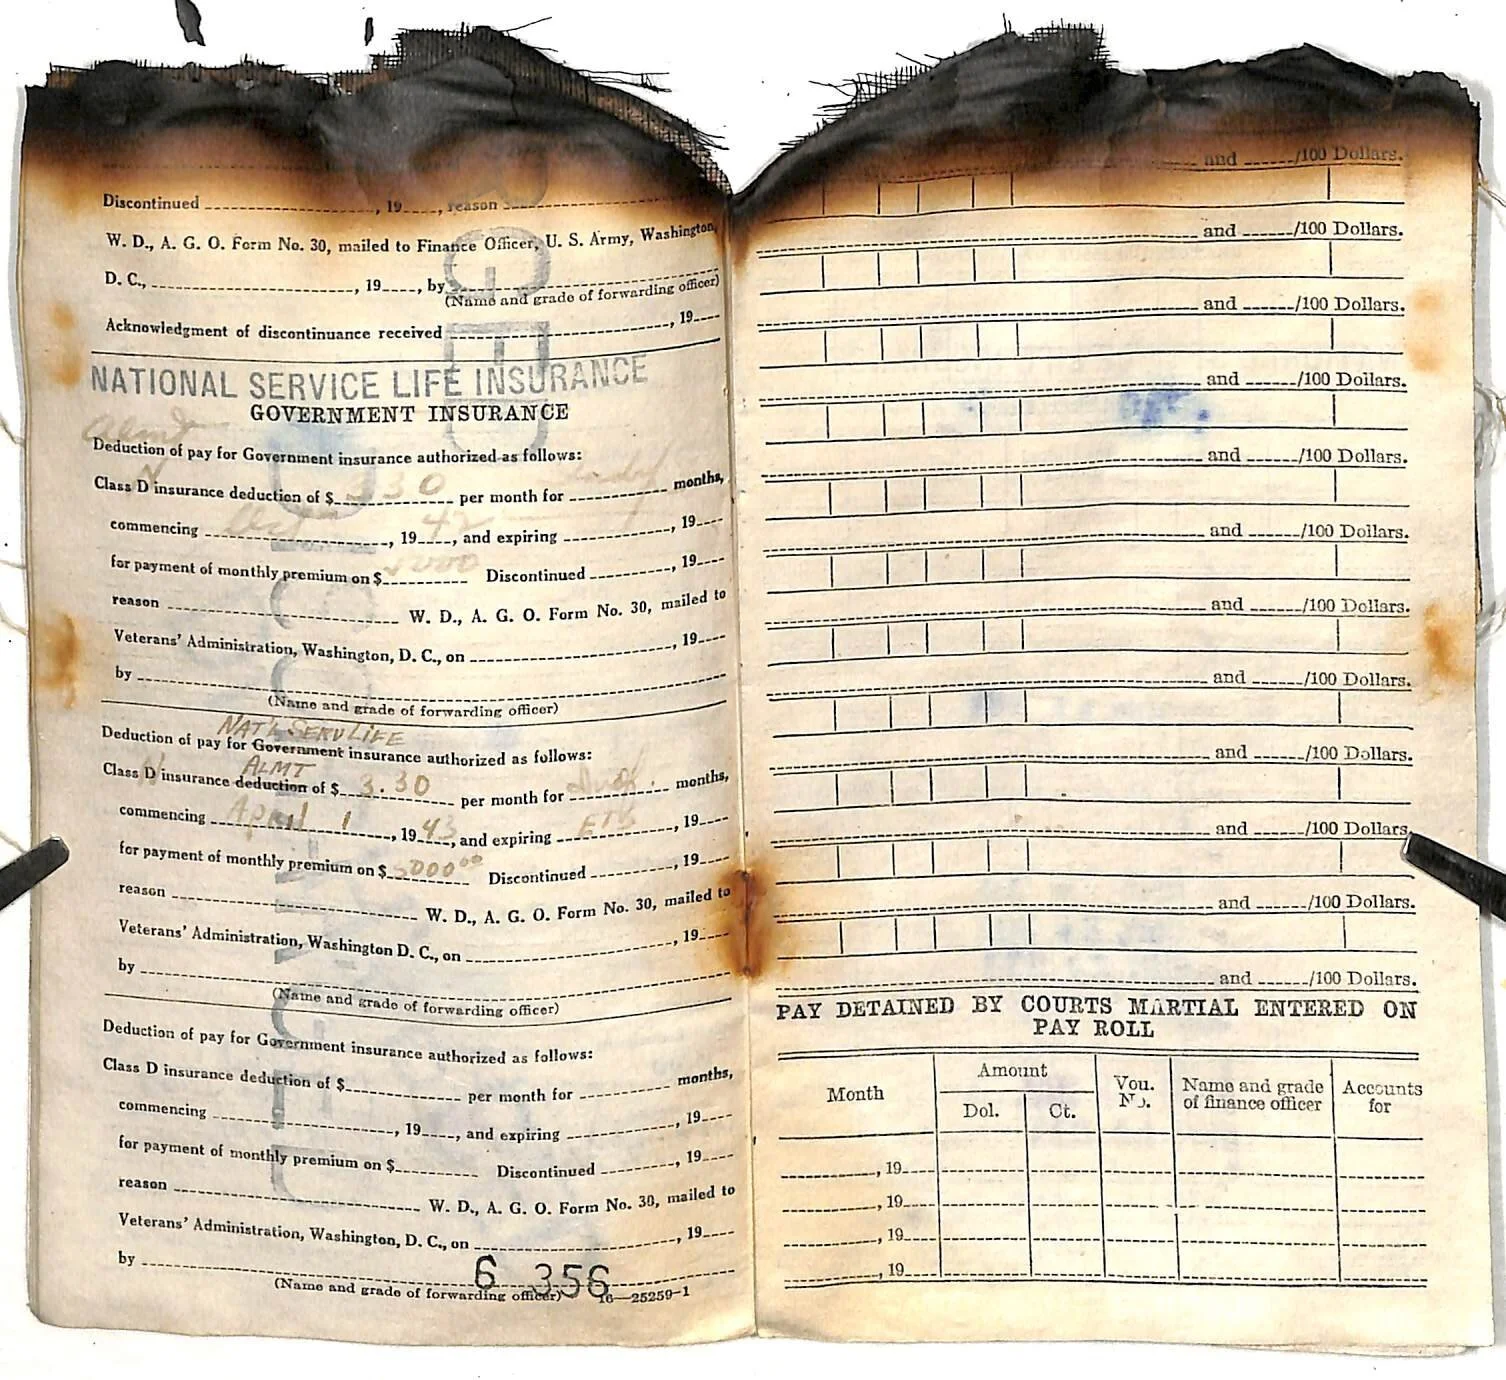 Discontinued ______, 19____, reason
W. D., A. G. O. Form No. 30, mailed to Finance Officer, U. S. Army, Washington,
D. C., ______, 19____, by ______
(Name and grade of forwarding officer)
Acknowledgment of discontinuance received ______, 19____
NATIONAL SERVICE LIFE INSURANCE
GOVERNMENT INSURANCE
Deduction of pay for Government insurance authorized as follows:
Class D insurance deduction of $ 3 30 per month for ______ months,
commencing ______, 19 42, and expiring ______, 19____
for payment of monthly premium on $______ Discontinued ______, 19____
reason ______ W. D., A. G. O. Form No. 30, mailed to
Veterans' Administration, Washington, D. C., on ______, 19____
by ______
(Name and grade of forwarding officer)
NAT'L SERV LIFE
Deduction of pay for Government insurance authorized as follows:
ALMT
Class D insurance deduction of $ 3.30 per month for ______ months,
commencing April 1, 19 43, and expiring ETS, 19____
for payment of monthly premium on $ 5000 00 Discontinued ______, 19____
reason ______ W. D., A. G. O. Form No. 30, mailed to
Veterans' Administration, Washington D. C., on ______, 19____
by ______
(Name and grade of forwarding officer)
Deduction of pay for Government insurance authorized as follows:
Class D insurance deduction of $______ per month for ______ months,
commencing ______, 19____, and expiring ______, 19____
for payment of monthly premium on $______ Discontinued ______, 19____
reason ______ W. D., A. G. O. Form No. 30, mailed to
Veterans' Administration, Washington, D. C., on ______, 19____
by ______
6 356
(Name and grade of forwarding officer) 16—25259-1
and ______/100 Dollars.
and ______/100 Dollars.
and ______/100 Dollars.
and ______/100 Dollars.
and ______/100 Dollars.
and ______/100 Dollars.
and ______/100 Dollars.
and ______/100 Dollars.
and ______/100 Dollars.
and ______/100 Dollars.
and ______/100 Dollars.
and ______/100 Dollars.
PAY DETAINED BY COURTS MARTIAL ENTERED ON
PAY ROLL
Month Amount Vou. No. Name and grade of finance officer Accounts for
Dol. Ct.
______, 19____
______, 19____
______, 19____
______, 19____